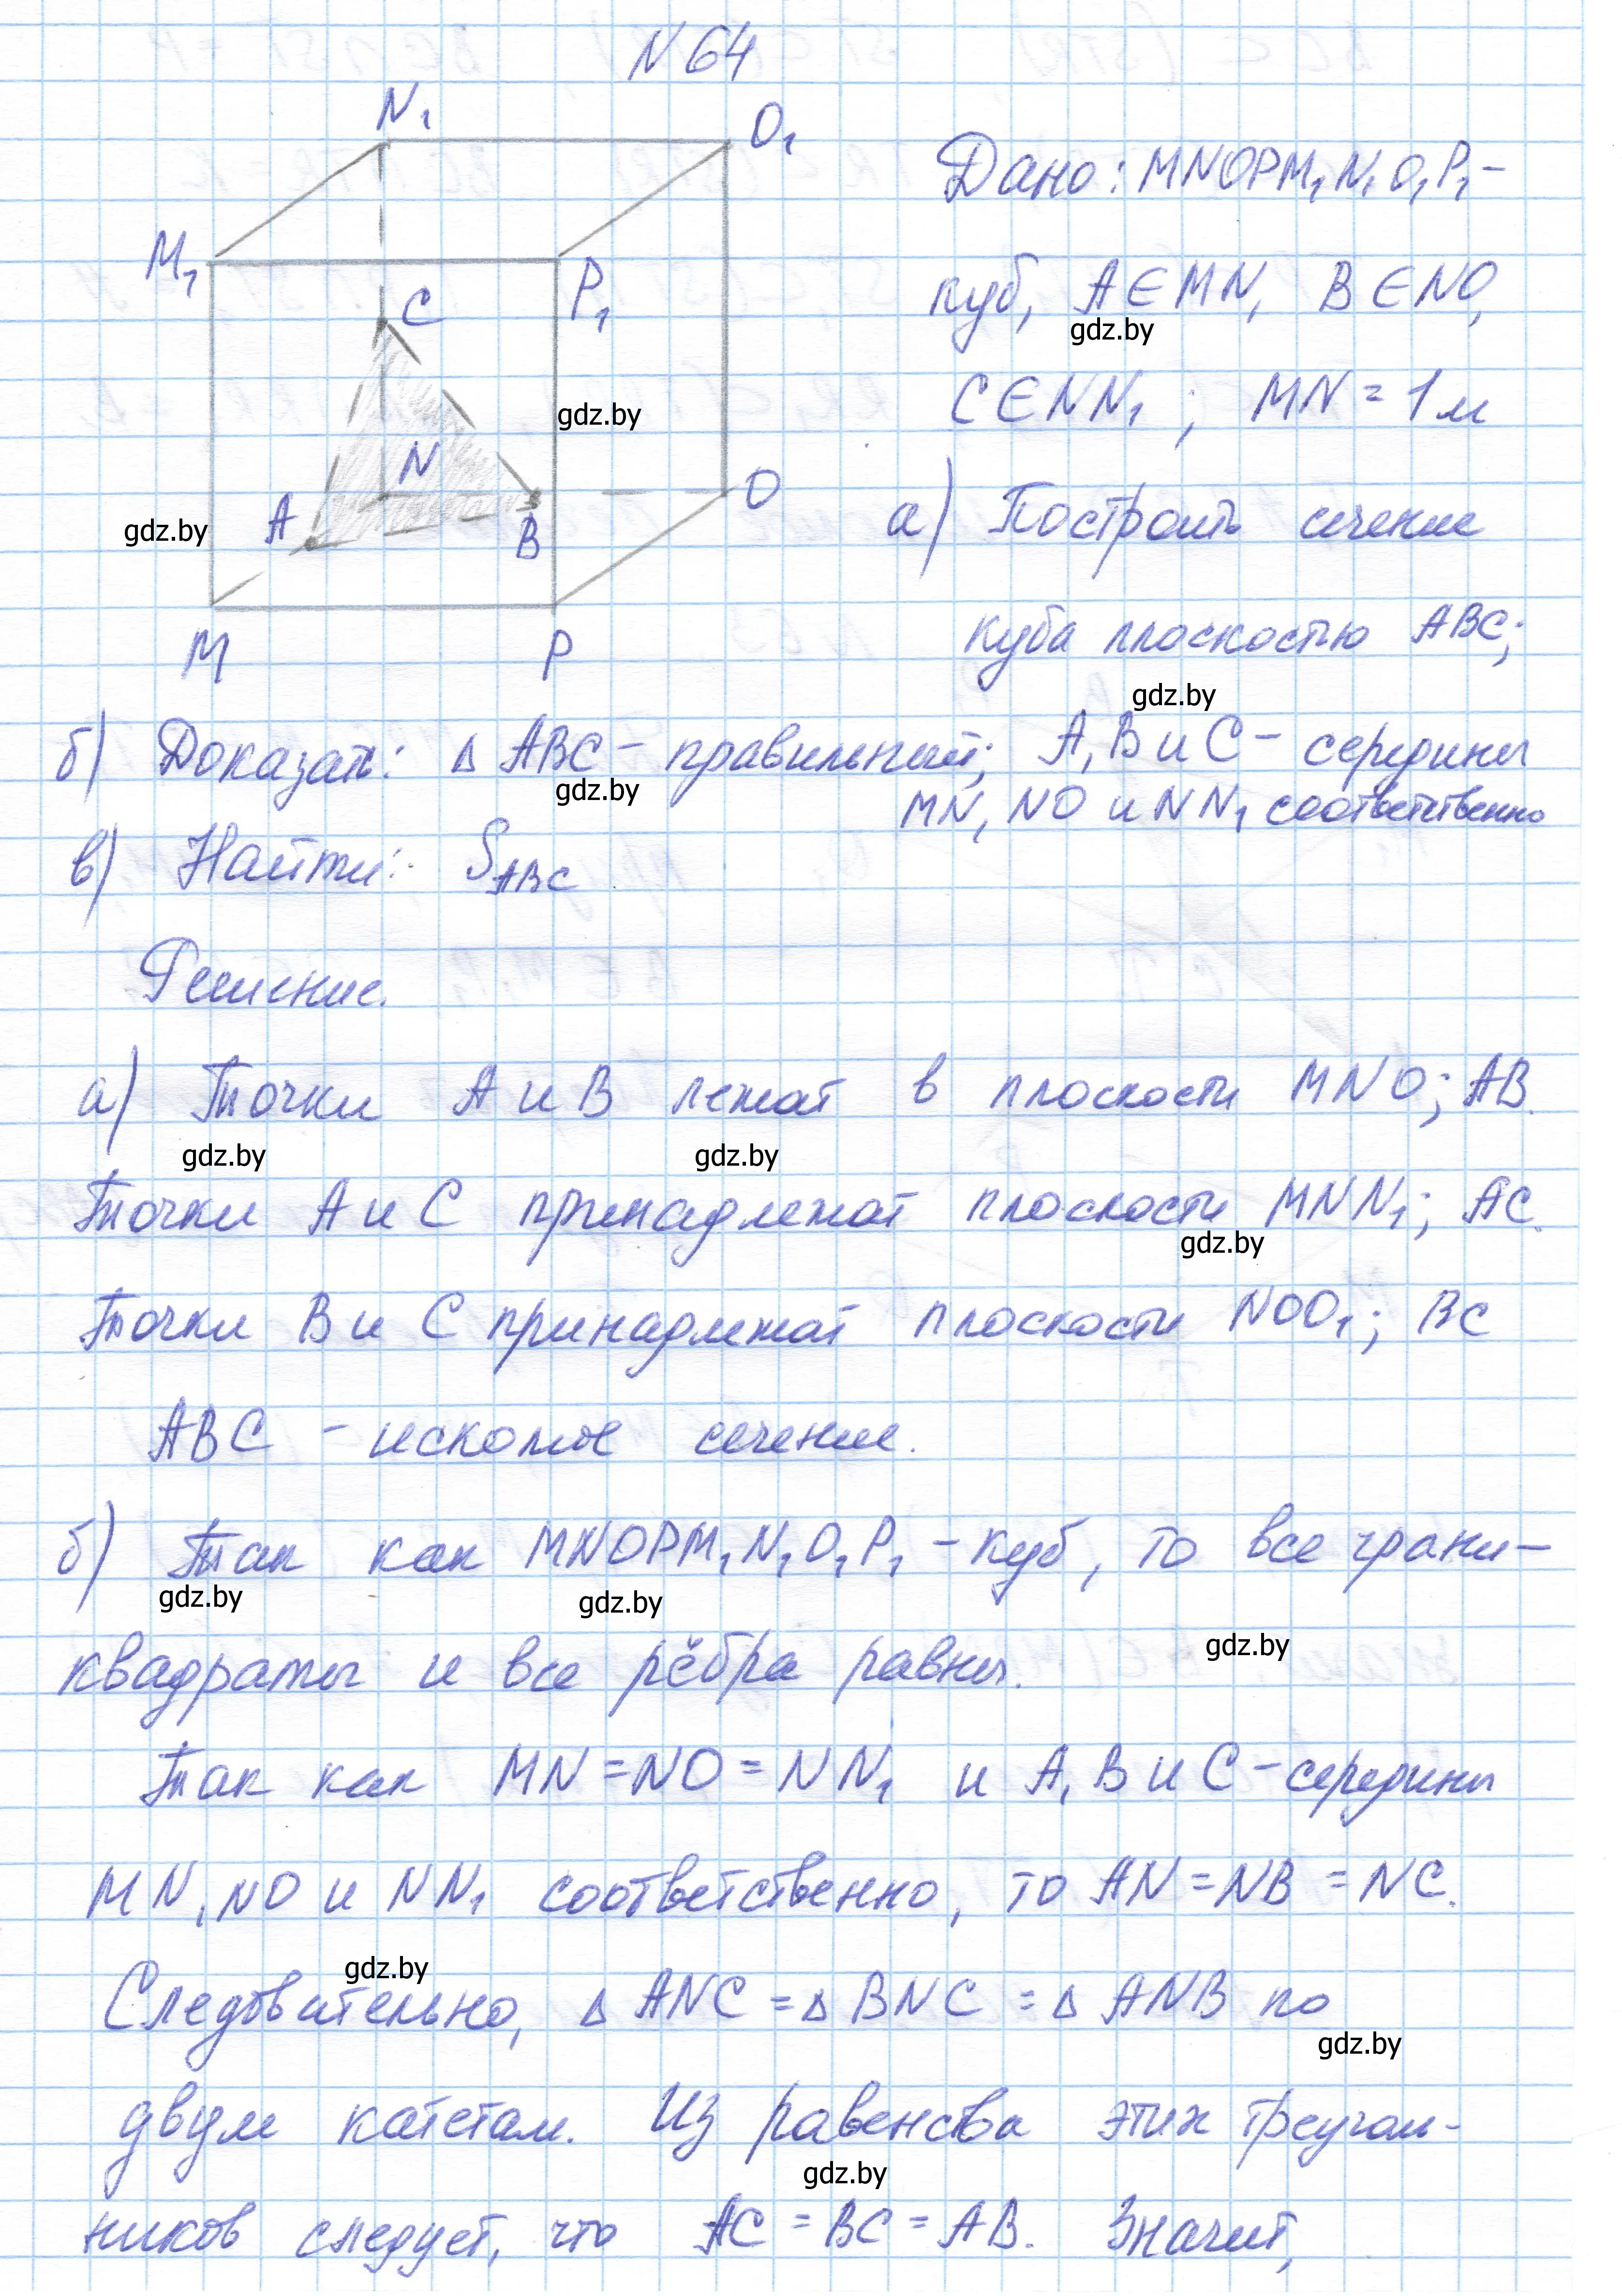 N 64
N₁
O₁
Дано: MNOPM₁N₁O₁P₁ –
M₁
P₁
куб, A∈MN, B∈NO,
gdz.by
C
C∈NN₁; MN = 1 м
gdz.by
N
O
A
B
gdz.by
а) Построить сечение
M
P
куба плоскостью ABC;
gdz.by
б) Доказать: △ ABC – правильный; A, B и C – середины
gdz.by
MN, NO и NN₁ соответственно
в) Найти: S_ABC
Решение.
а) Точки A и B лежат в плоскости MNO; AB.
gdz.by gdz.by
Точки A и C принадлежат плоскости MNN₁; AC.
gdz.by
Точки B и C принадлежат плоскости NOO₁; BC
ABC – искомое сечение.
б) Так как MNOPM₁N₁O₁P₁ – куб, то все грани –
gdz.by gdz.by
gdz.by
квадраты и все рёбра равны.
Так как MN = NO = NN₁ и A, B и C – середины
MN, NO и NN₁ соответственно, то AN = NB = NC.
gdz.by
Следовательно, △ ANC = △ BNC = △ ANB по
gdz.by
двум катетам. Из равенства этих треуголь-
gdz.by
ников следует, что AC = BC = AB. Значит,